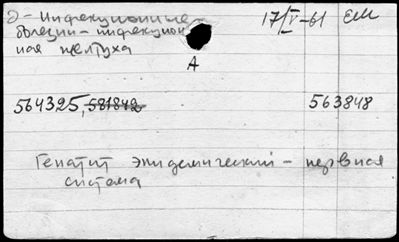 Э - Инфекционные
болезни - инфекцион
ная желтуха
17/V-61 ЕМ
А
564325, 581842
563848
Гепатит эпидемический - нервная
система